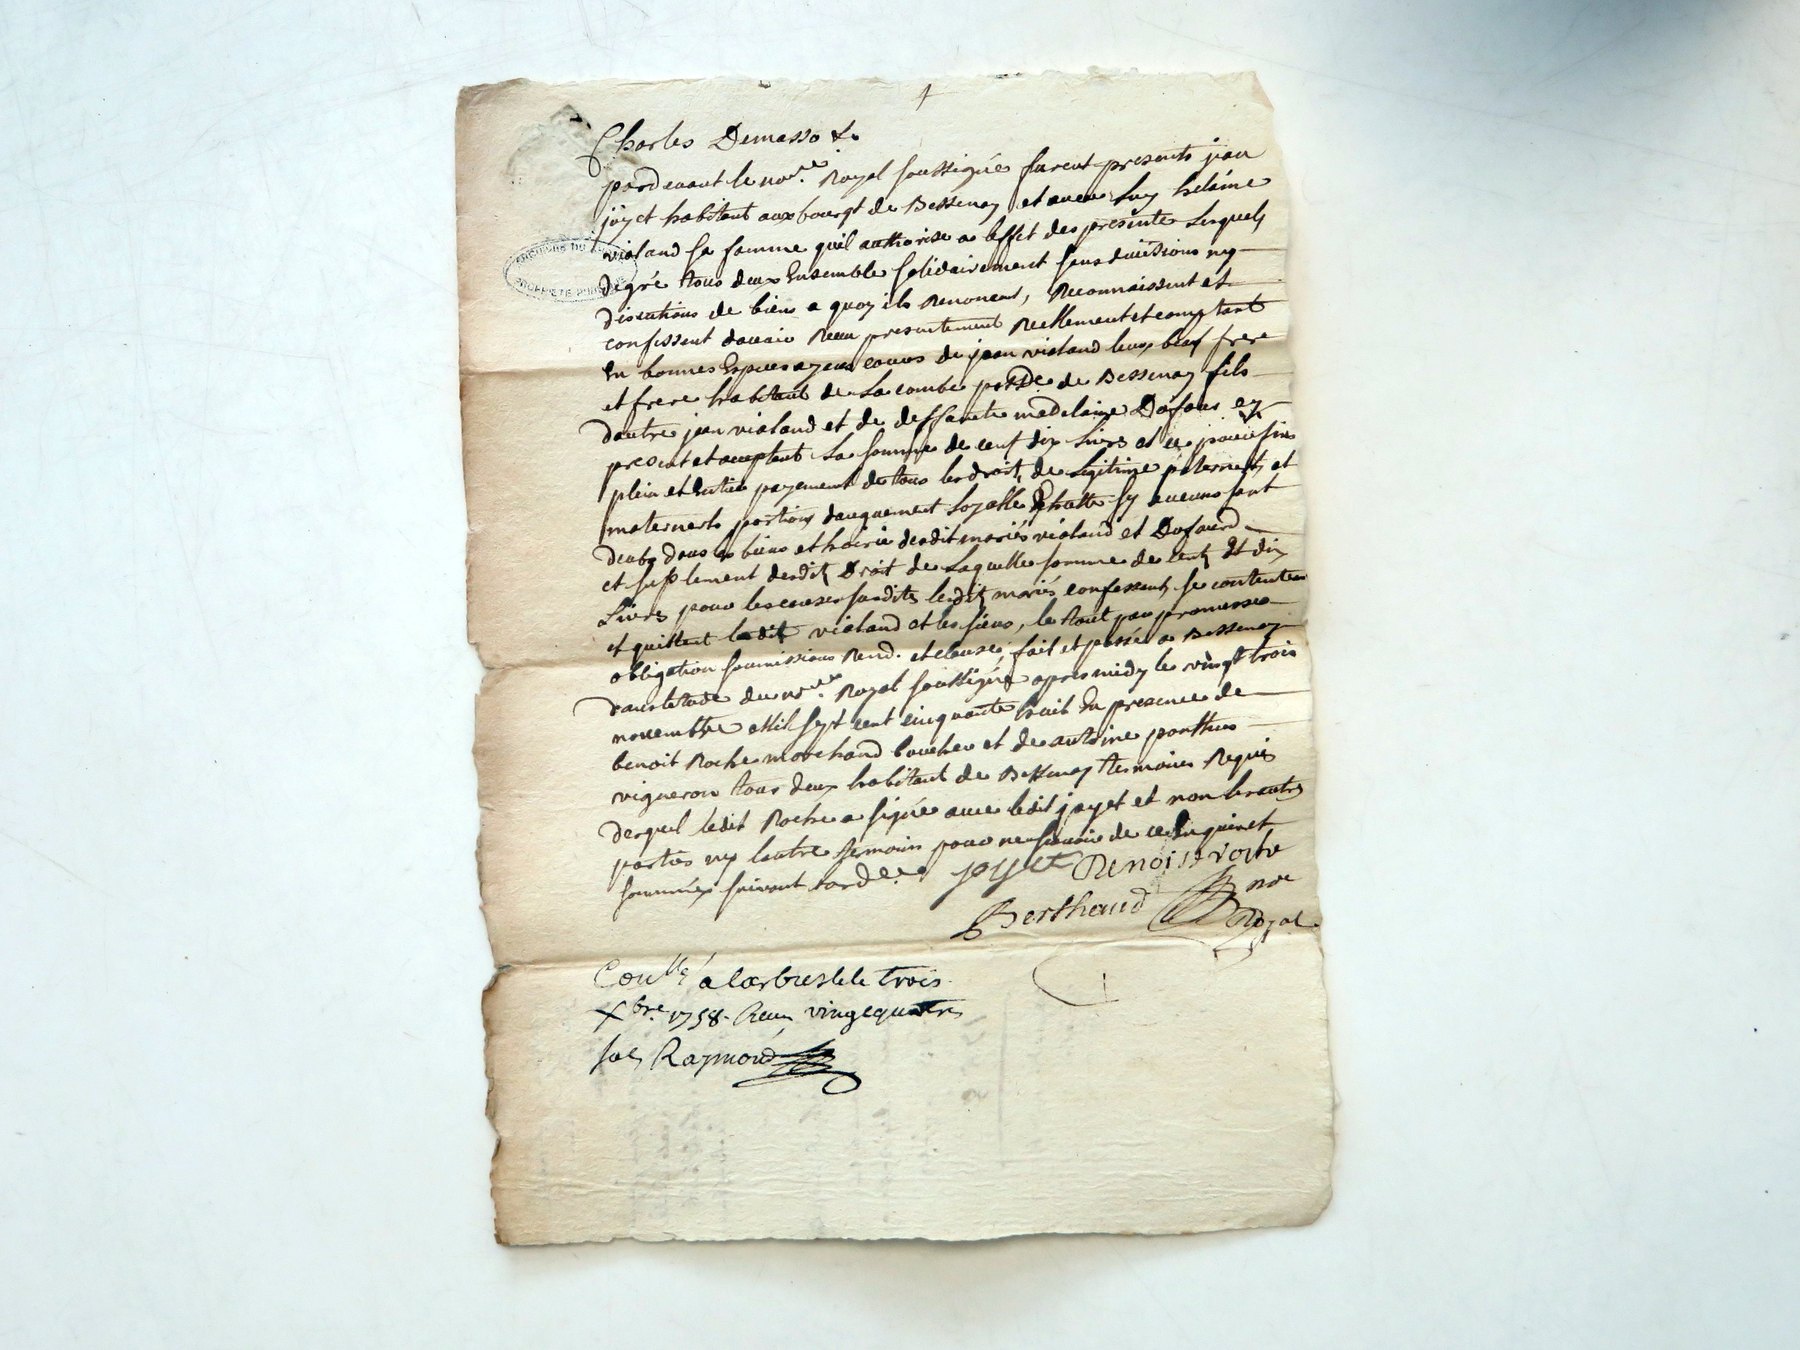 Charles Demasso &c
pardevant le nore. Royal soussigné furent presents jean
jayet habitant aux bourgt de Bessenay et avec luy helaine
vialand sa famme quil authorise a leffet des presente Lesquels
degré tous deux Ensemble solidairement sans divisions ny
discutions de biens a quoy ils Renoncent, Reconnaissent et
confessent davoir Receu presentement Reellement et comptant
En bonnes Especes ayens cours de jean vialand leurs beaf frere
et frere habitant de La combe passe de Bessenay fils
dautre jean vialand et de deffante madelaine Dafaus cy
present et acceptent La somme de cent dix Livres et ce pour
plein et Entier payement de tous les droits de Legitime paternels et
maternerls portions daugument Loyalle sy aucuns sont
deubs dans les biens et hoirie desdit mariés vialand et Dafaurd
et suplement desdits Droit de Laquelle somme de cent Et dix
Livres pour les causes susdits lesdits mariés confessents se contenter
et quittent ledit vialand et les siens, le tout par promesses
obligation soumissions Rend. et clauses, fait et passé a Bessenay
dans letude du nore. Royal soussigné apres midy le vingt trois
novembre Mil sept cent cinquante huit En presence de
benoit Roche marchand boucher et de antoine ponthus
vigneron tous deux habitant de Bessenay tesmoins Requis
desquel ledit Roche a signé avec ledit jayet et non les autres
parties ny lautre temoin pour ne scavoir de ce Enquis et
sommés suivant lord.ce
jayet Benoist roche
Berthaud nore
Royal
Conllé a larbresle le trois
Xbre. 1758. Receu vingt quatre
sols Raymond